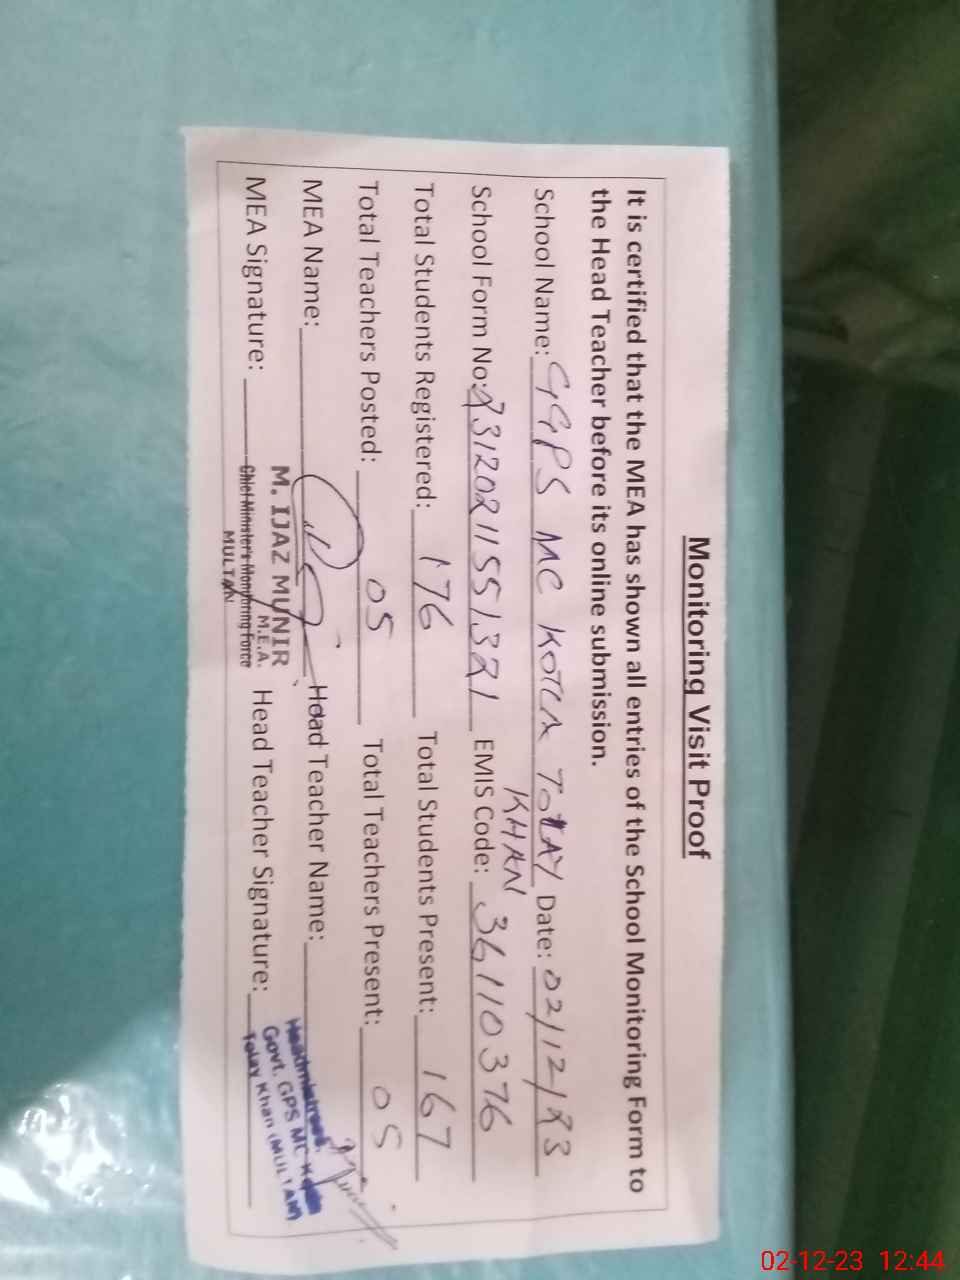 Monitoring Visit Proof
It is certified that the MEA has shown all entries of the School Monitoring Form to
the Head Teacher before its online submission.
School Name: GGPS MC KOTLA TOLAY Date: 02/12/23
KHAN
School Form No: 23120211551321 EMIS Code: 36110376
Total Students Registered: 176 Total Students Present: 167
Total Teachers Posted: 05 Total Teachers Present: 05
MEA Name: Head Teacher Name:
MEA Signature: Head Teacher Signature:
M. IJAZ MUNIR
M.E.A.
Chief Minister's Monitoring Force
MULTAN
Headmistress,
Govt. GPS MC
Tolay Khan (MULTAN)
02-12-23 12:44